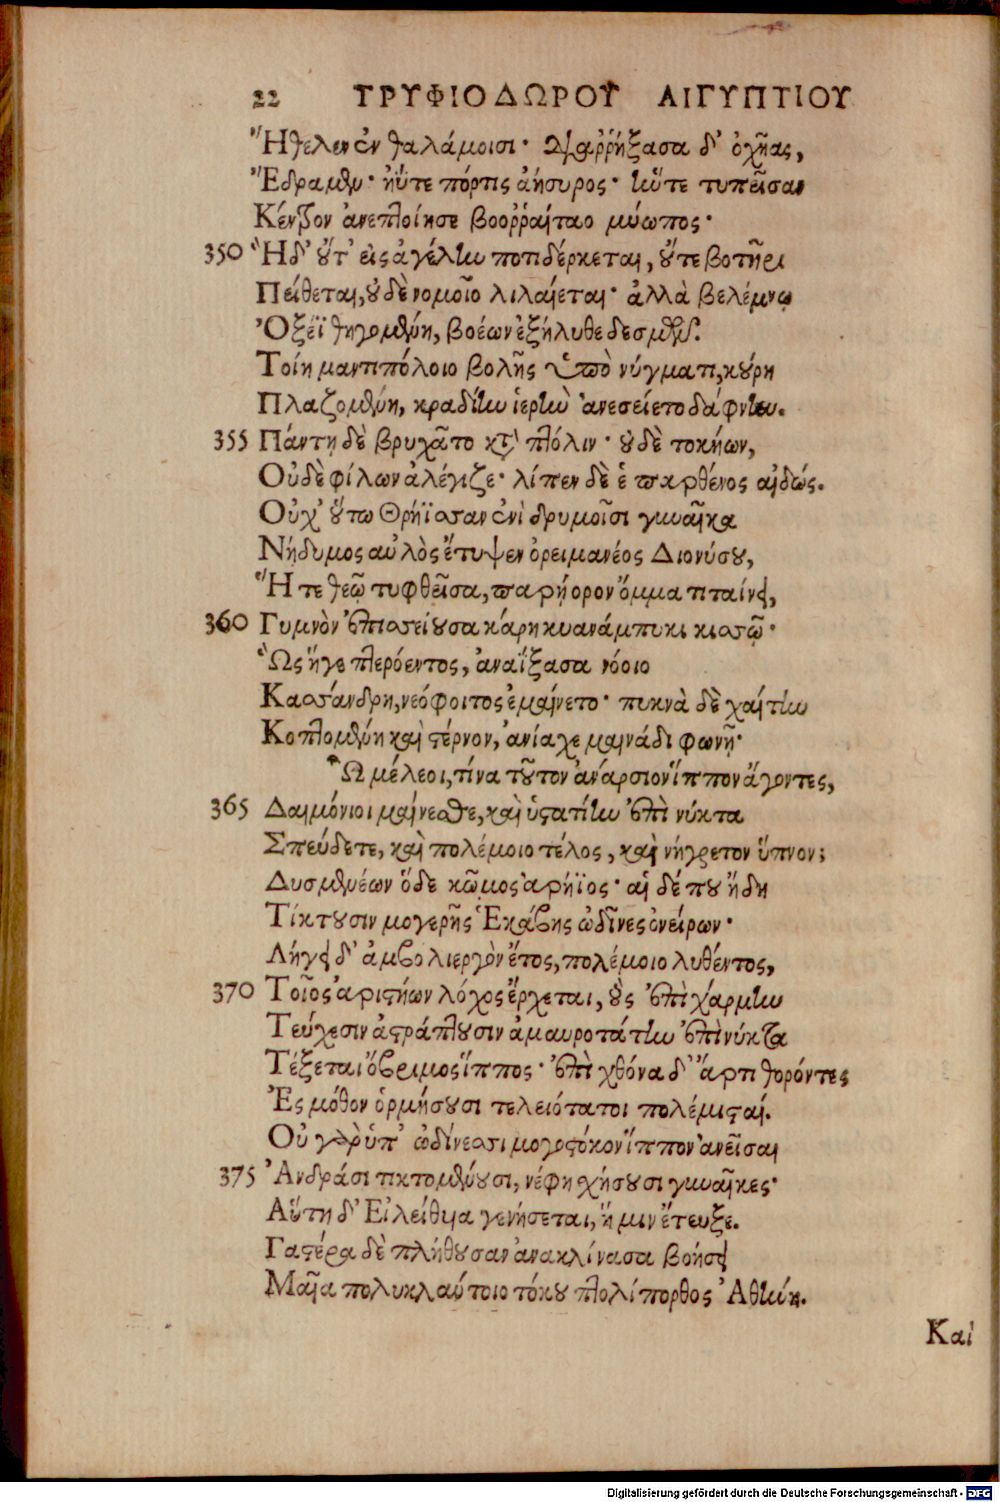 22 ΤΡΥΦΙΟΔΩΡΟΥ ΑΙΓΥΠΤΙΟΥ
Ἤθελεν ἐν θαλάμοισι· Διαῤῥήξασα δ' ὀχῆας,
Ἔδραμεν· ἠΰτε πόρτις ἀήσυρος· ἣν τε τυπεῖσαν
Κέντρον ἀνεπτοίησε βοοῤῥαίταο μύωπος·
350 Ἡ δ' οὔτ' εἰς ἀγέλην ποτιδέρκεται, οὔτε βοτῆρι
Πείθεται, οὐδὲ νομοῖο λιλαίεται· ἀλλὰ βελέμνῳ
Ὀξέϊ θηγομένη, βοέων ἐξήλυθε δεσμῶν.
Τοίη μαντιπόλοιο βολῆς ὑπὸ νύγματι, κούρη
Πλαζομένη, κραδίην ἱερὴν ἀνεσείετο δάφνην.
355 Πάντη δὲ βρυχᾶτο κατὰ πτόλιν· οὐδὲ τοκήων,
Οὐδὲ φίλων ἀλέγιζε· λίπεν δὲ ἑ παρθένος αἰδώς.
Οὐχ' οὕτω Θρήϊσσαν ἐνὶ δρυμοῖσι γυναῖκα
Νήδυμος αὐλὸς ἔτυψεν ὀρειμανέος Διονύσου,
Ἥ τε θεῷ τυφθεῖσα, παρήορον ὄμμα τιταίνει,
360 Γυμνὸν ἐπισσείουσα κάρη κυανάμπυκι κισσῷ·
Ὣς ἥγε πτερόεντος, ἀναΐξασα νόοιο
Κασσάνδρη, νεόφοιτος ἐμαίνετο· πυκνὰ δὲ χαίτην
Κοπτομένη καὶ στέρνον, ἀνίαχε μαινάδι φωνῇ·
Ὦ μέλεοι, τίνα τοῦτον ἀνάρσιον ἵππον ἄγοντες,
365 Δαιμόνιοι μαίνεσθε, καὶ ὑστατίην ἐπὶ νύκτα
Σπεύδετε, καὶ πολέμοιο τέλος, καὶ νήγρετον ὕπνον;
Δυσμενέων ὅδε κῶμος ἀρήϊος· αἱ δέ που ἤδη
Τίκτουσιν μογερῆς Ἑκάβης ὠδῖνες ὀνείρων·
Λήγει δ' ἀμβολιεργὸν ἔτος, πολέμοιο λυθέντος,
370 Τοῖος ἀριστήων λόχος ἔρχεται, οὓς ἐπὶ χάρμην
Τεύχεσιν ἀστράπτουσιν ἀμαυροτάτην ἐπὶ νύκτα
Τέξεται ὄβριμος ἵππος· ἐπὶ χθόνα δ' ἄρτι θορόντες
Ἐς μόθον ὁρμήσουσι τελειότατοι πολέμισταί.
Οὐ γὰρ ὑπ' ὠδίνεσσι μογοστόκον ἵππον ἀνεῖσαι
375 Ἀνδράσι τικτομένουσι, νέφη χήσουσι γυναῖκες·
Αὕτη δ' Εἰλείθυια γενήσεται, ἥ μιν ἔτευξε.
Γαστέρα δὲ πλήθουσαν ἀνακλίνασα βοήσει
Μαῖα πολυκλαύτοιο τόκου πτολίπορθος Ἀθήνη.
Καὶ
Digitalisierung gefördert durch die Deutsche Forschungsgemeinschaft - DFG